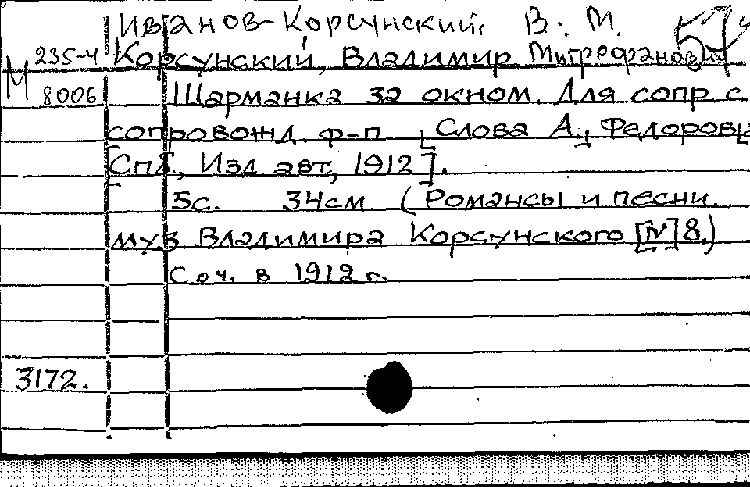 Иванов-Корсунский, В. М.
М 235-4 Корсунский, Владимир Митрофанович
8006 Шарманка за окном. Для сопр с
сопровожд. ф-п [Слова А., Федоровы
СПб, Изд авт, 1912].
5с. 34см (Романсы и песни.
муз Владимира Корсунского [N]8.)
Соч. в 1912 г.
3172.